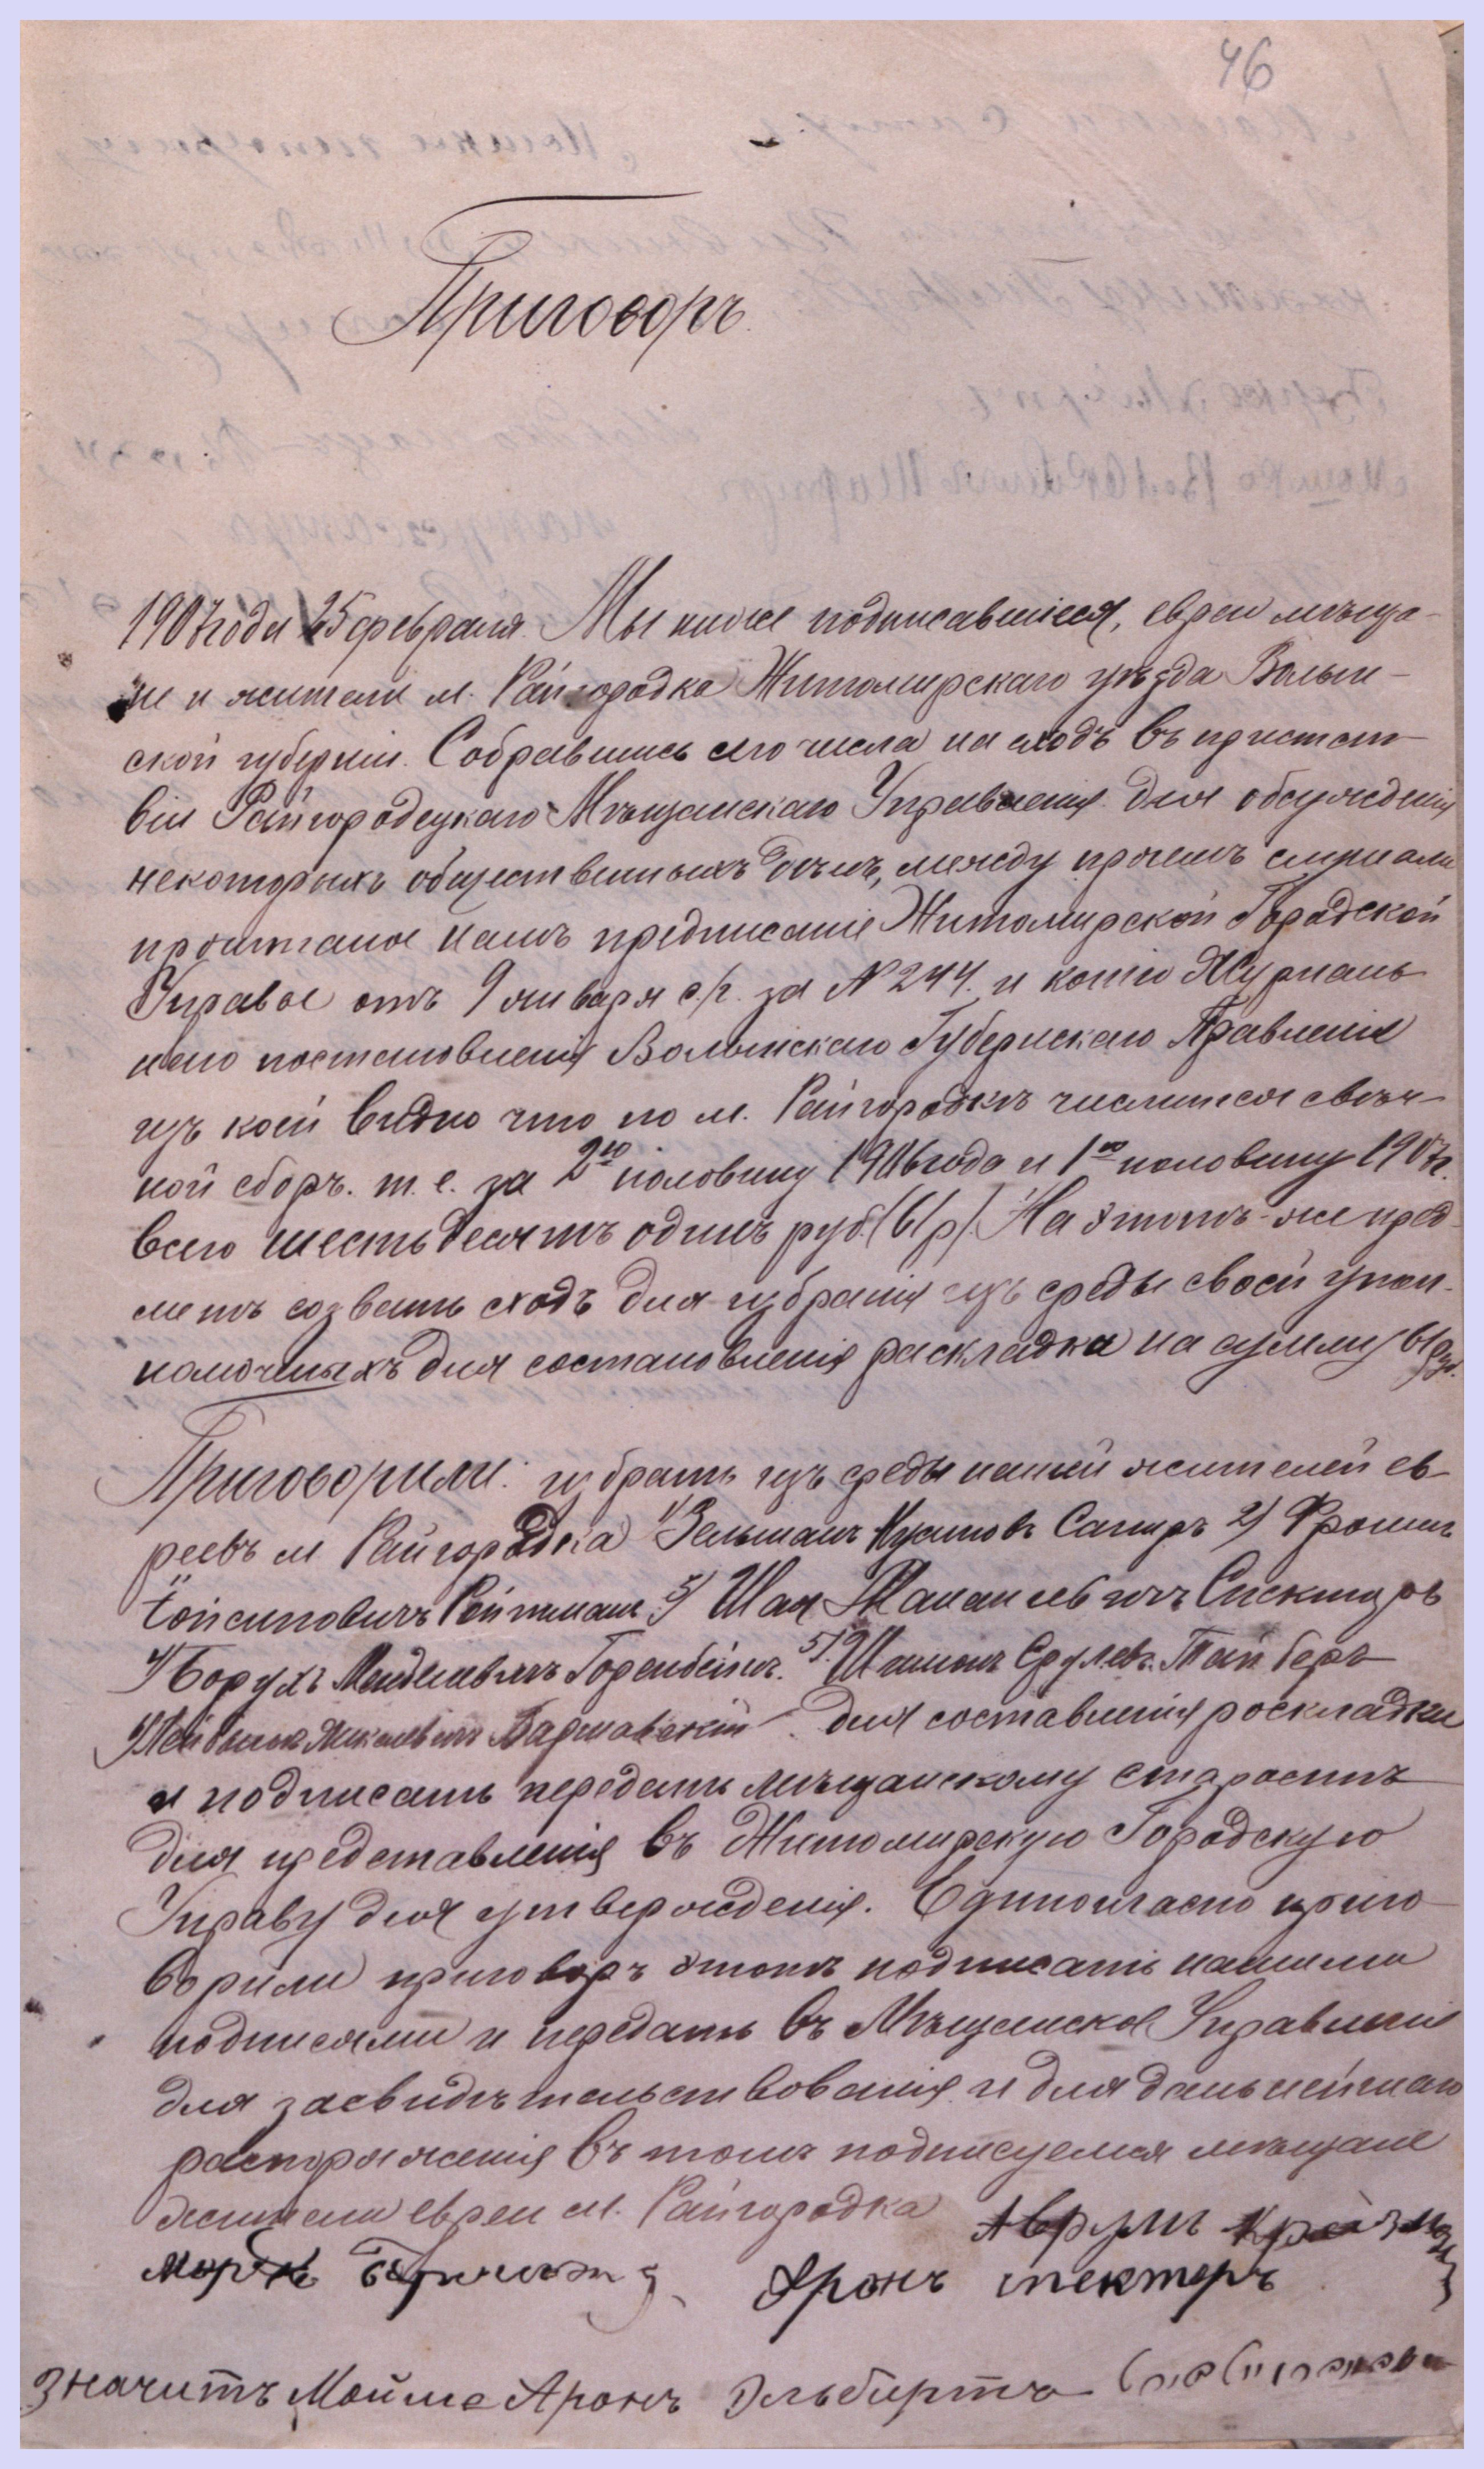 46
Приговоръ
1907 года 25 февраля. Мы ниже подписавшіеся, евреи мѣща-
не и жители м. Райгородка Житомирскаго уѣзда Волын-
ской губерніи. Собравшись сего числа на сходъ въ присутст-
віи Райгородецкаго Мѣщанскаго Управленія для обсужденія
некоторыхъ общественныхъ дѣлъ, между прочемъ слушали
прочитаное намъ предписаніе Житомирской Городской
Управы отъ 9 января с/г. за N 244. и копію Журналь-
наго постановленія Волынскаго Губернскаго Правленія
изъ коей видно что по м. Райгородкѣ числится свѣч-
ной сборъ. т. е. за 2ю половину 1906 года и 1ю половину 1907 г.
всего шестьдесятъ одинъ руб. (61 р.) На этотъ-же пред-
метъ созвать сходъ для избранія изъ среды своей упол-
номоченыхъ для состановленія раскладка на сумму 61 руб.
Приговорили: избрать изъ среды нашей жителей ев-
реевъ м. Райгородка 1) Зельманъ Сапиръ 2) Фроимъ
Ройтманъ 3) Шая Спекторъ
4) Борухъ Менделевичъ Горенбейнъ. 5) Шимонъ Срулев. Тайберъ
6) Варшавскій для составленія роскладки
и подписать передать мѣщанскому старостѣ
для представленія въ Житомирскую Городскую
Управу для утвержденія. Единогласно приго-
ворили приговоръ этотъ подписать нашими
подписями и передать въ Мѣщанское Управленіе
для засвидѣтельствованія и для дальнейшаго
распоряженія въ томъ подписуемся мѣщане
жители евреи м. Райгородка Аврумъ
Аронъ спекторъ
значитъ Мойше Аронъ Эльбертъ